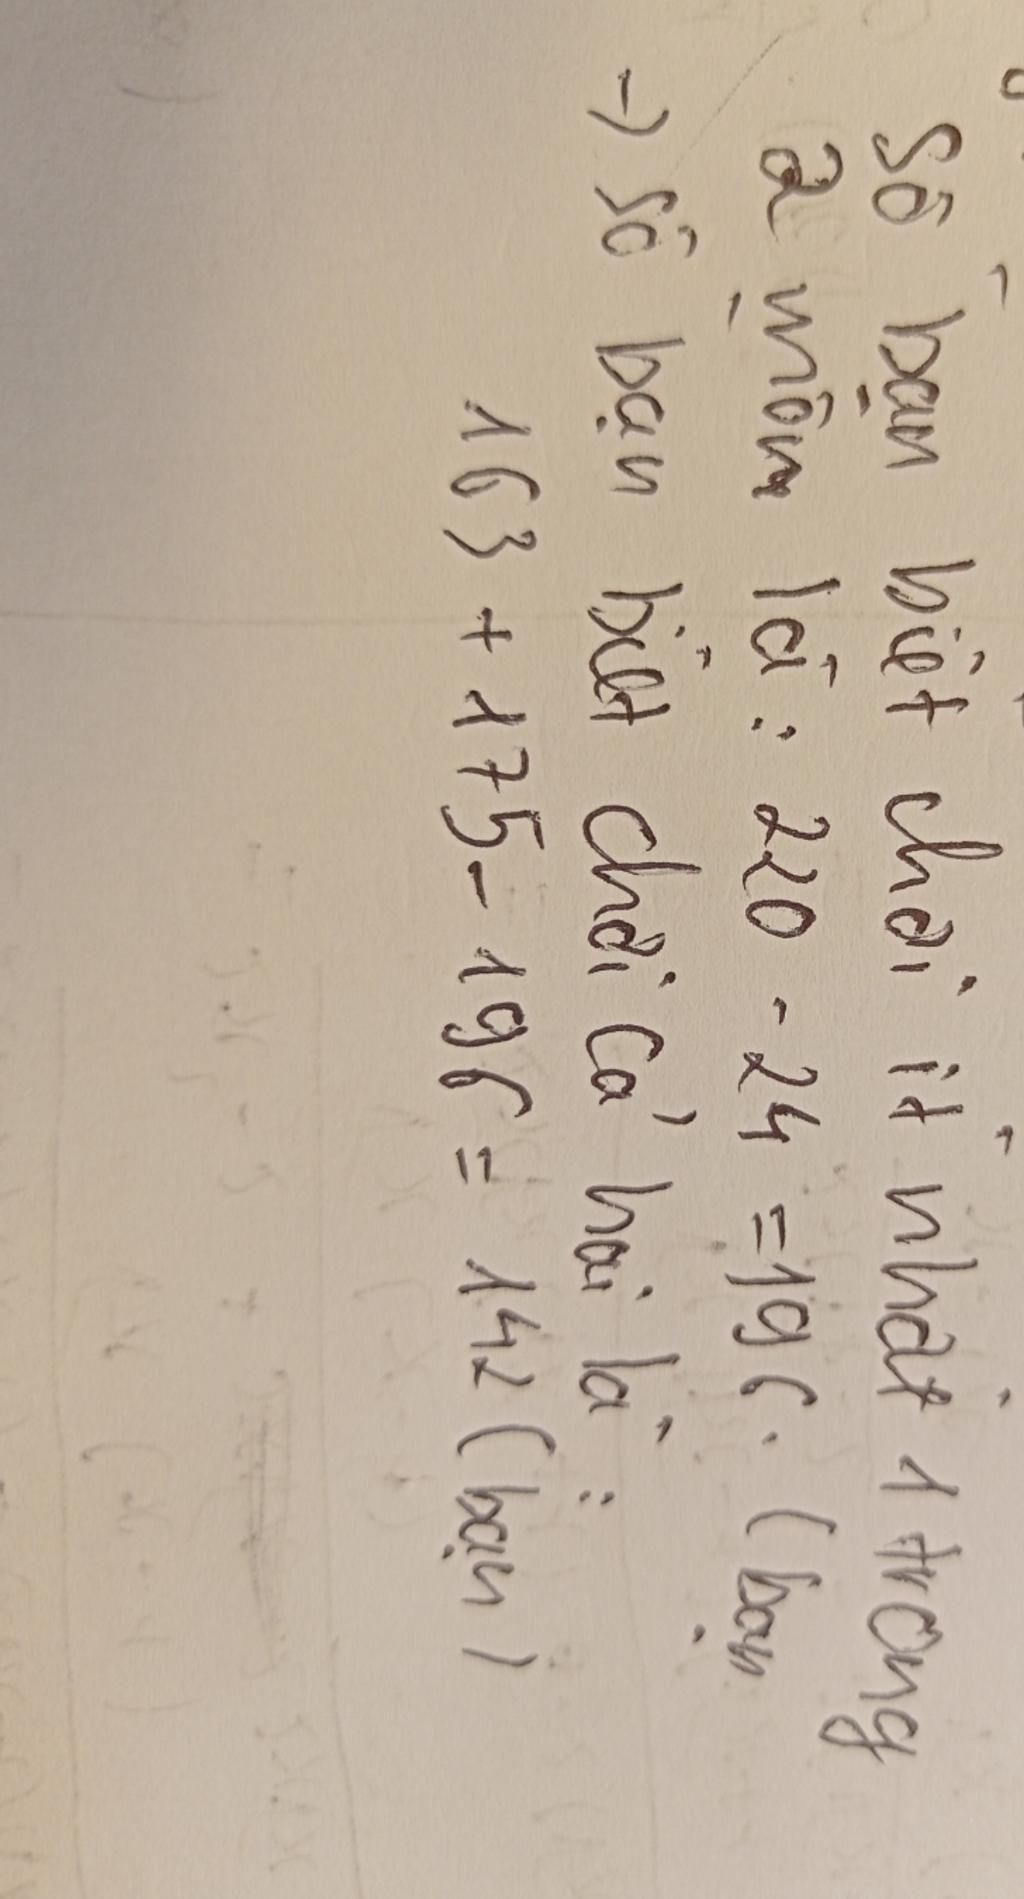 Số bạn biết chơi ít nhất 1 trong
2 môn là: 220 - 24 = 196. (bạn
→ Số bạn biết chơi cả hai là:
163 + 175 - 196 = 142 (bạn)